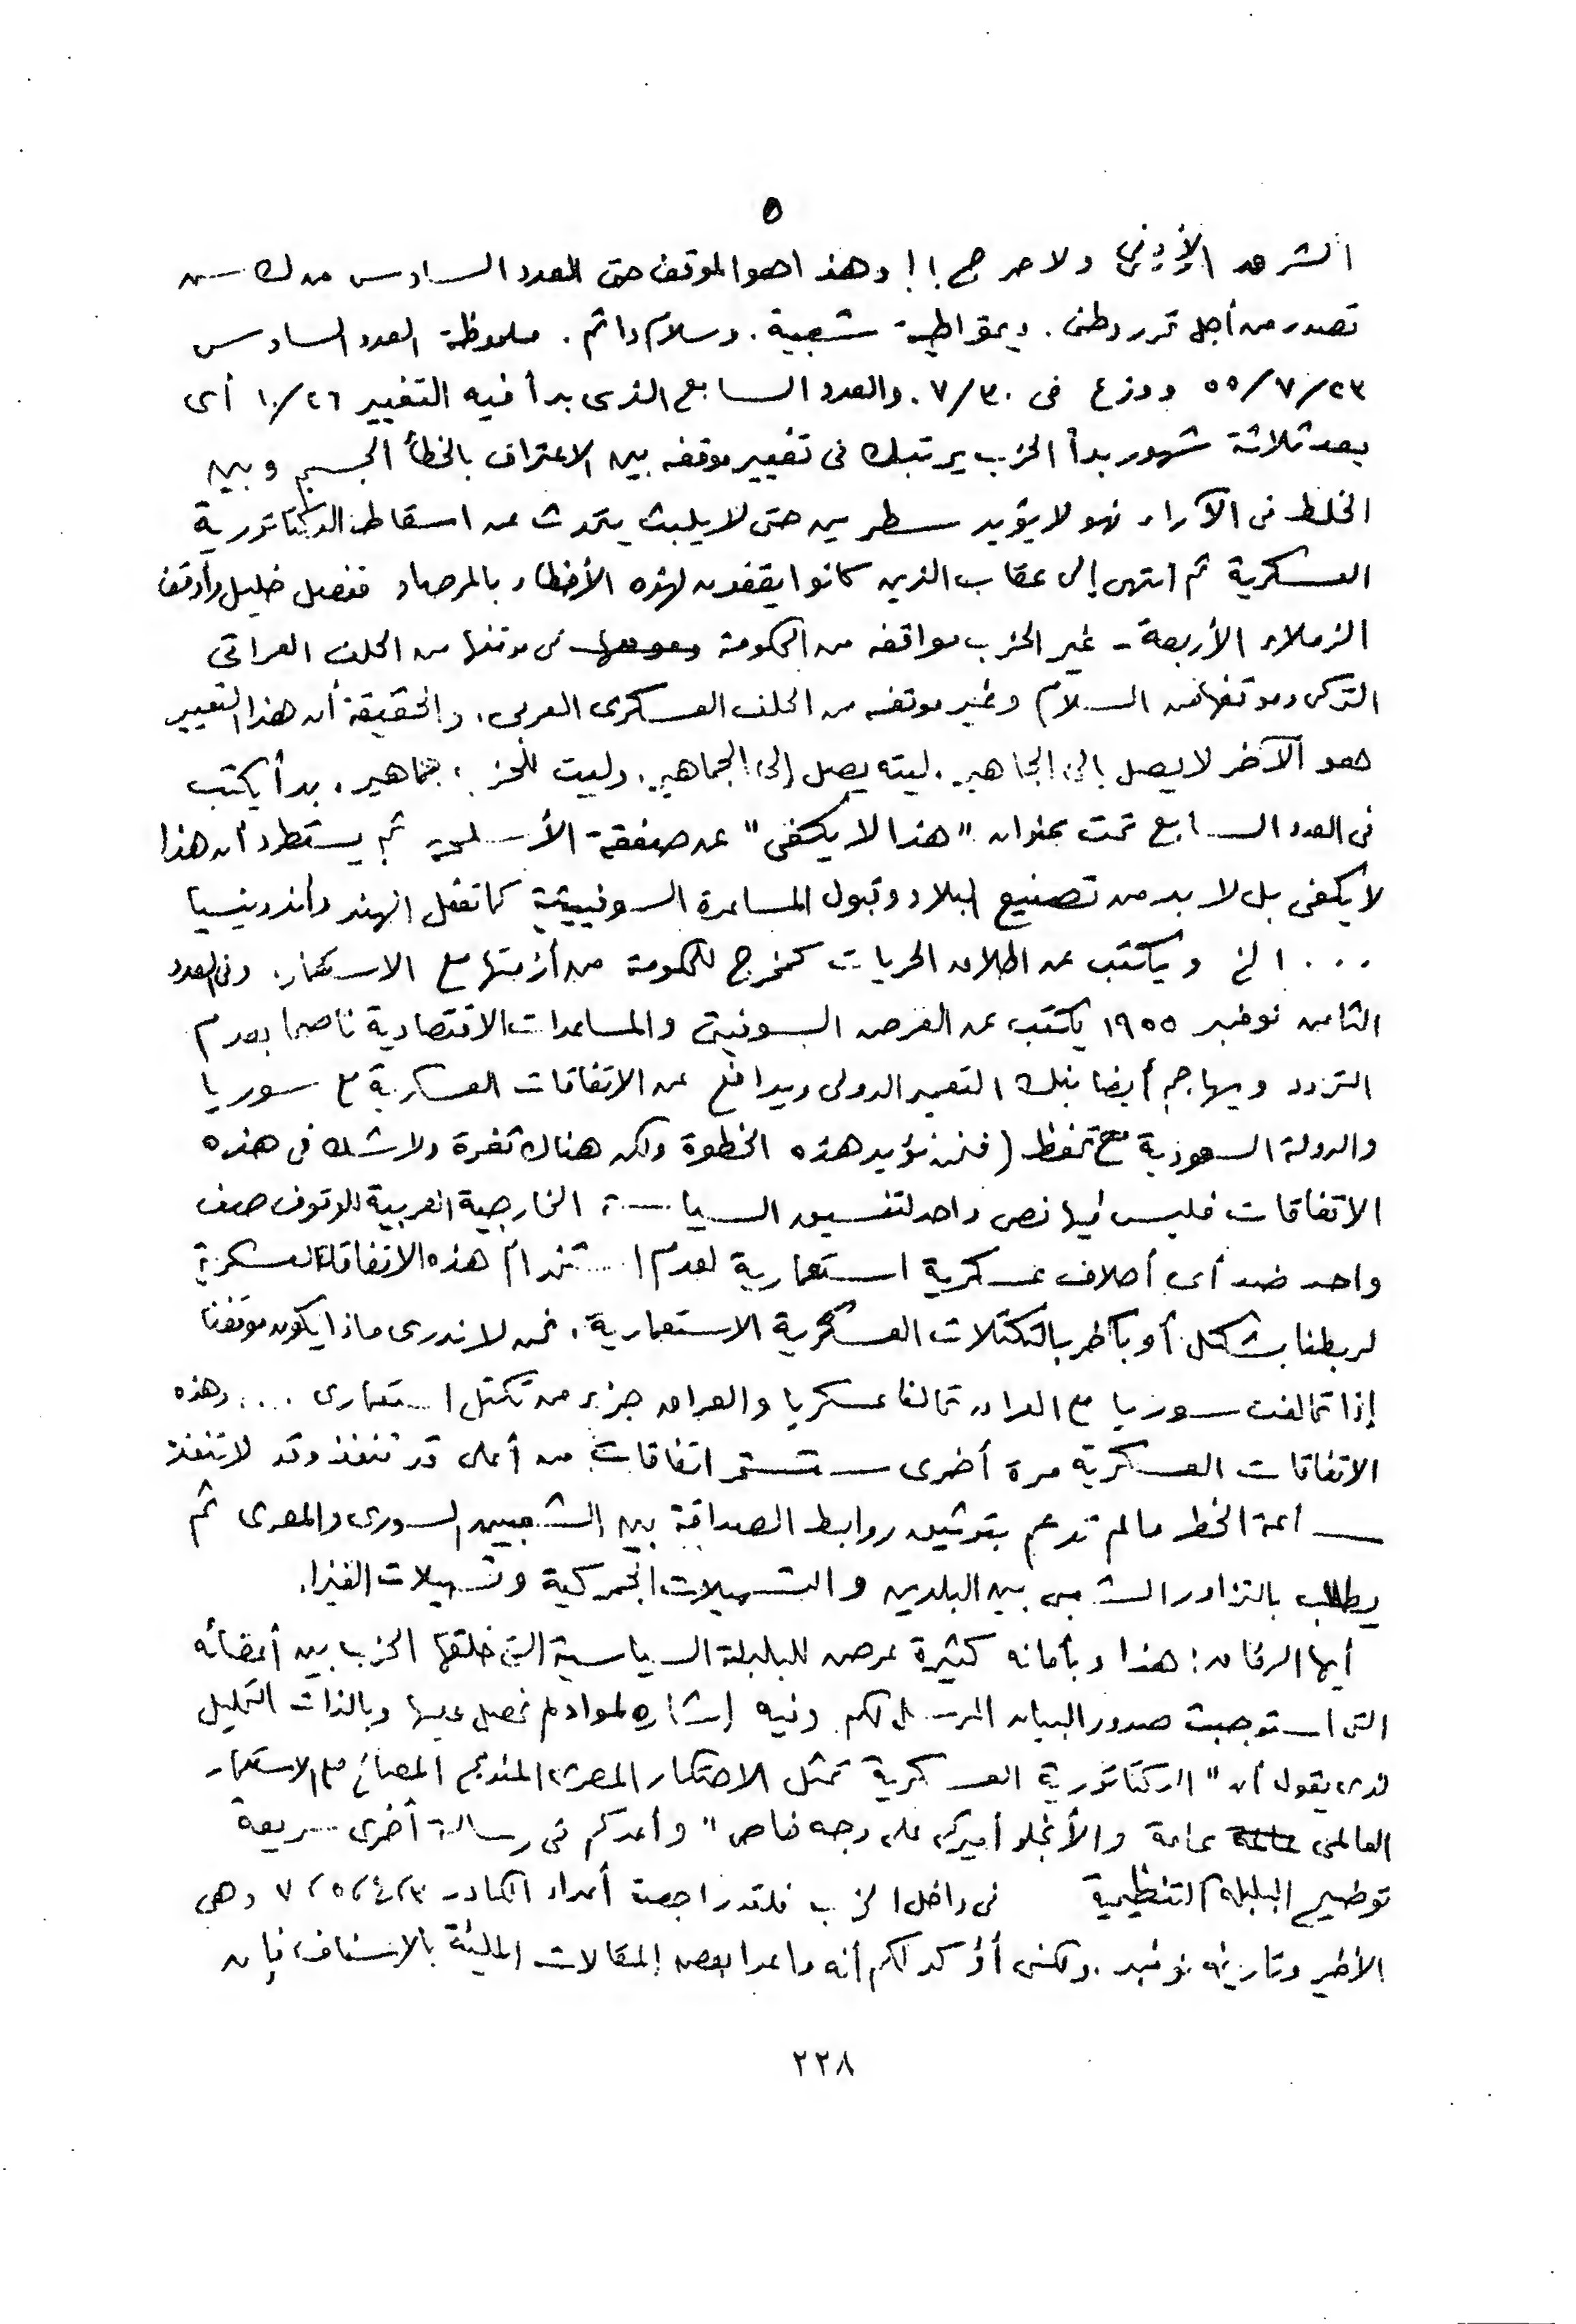 ٥
الشرق الأدنى ولا حرج!! وهذا هو الموقف حتى العدد السادس من
تصدر من أجل تحرر وطنى. ديمقراطية شعبية. وسلام دائم. ملحوظة العدد السادس
٥٥/٧/٢٣ ووزع فى ٧/٣٠. والعدد السابع الذى بدأ فيه التغيير ١٠/٢٦ أى
بعد ثلاثة شهور بدأ الحزب يرتبك فى تغيير موقفه بين الاعتراف بالخطأ الجسيم وبين
الخلط فى الآراء فهو لا يؤيد سطرين حتى لا يلبث يتحدث عن اسقاط الدكتاتورية
العسكرية ثم انتهى إلى عقاب الذين كانوا يقفون لهذه الأخطاء بالمرصاد ففصل خليل وأوقف
الزملاء الأربعة - غير الحزب مواقفه من الحكومة فى موقفها من الحلف العراقى
التركى وموقفها من السلام وغير موقفه من الحلف العسكرى العربى. والحقيقة أن هذا التغيير
هو الآخر لا يصل إلى الجماهير. ليته يصل إلى الجماهير. وليت للحزب جماهير. بدأ يكتب
فى العدد السابع تحت عنوان "هذا لا يكفى" عن صفقة الأسلحة ثم يستطرد أن هذا
لا يكفى بل لا بد من تصنيع البلاد وقبول المساعدة السوفييتية كما تفعل الهند وأندونيسيا
... الخ ويكتب عن اطلاق الحريات كمخرج للحكومة من أزمتها مع الاستعمار. وفى العدد
الثامن نوفمبر ١٩٥٥ يكتب عن القرض السوفيتى والمساعدات الاقتصادية ناصحا بعدم
التردد ويهاجم أيضا بنك التعمير الدولى ويدافع عن الاتفاقات العسكرية مع سوريا
والدولة السعودية مع تحفظ (فنحن نؤيد هذه الخطوة ولكن هناك ثغرة ولا شك فى هذه
الاتفاقات فليس فيها نص واحد لتنسيق السياسة الخارجية العربية للوقوف صف
واحد ضد أى أحلاف عسكرية استعمارية لعدم استخدام هذه الاتفاقات العسكرية
لربطنا بشكل أو بآخر بالتكتلات العسكرية الاستعمارية. نحن لا ندرى ماذا يكون موقفنا
إذا تحالفت سوريا مع العراق تحالفا عسكريا والعراق جزء من تكتل استعمارى .... وهذه
الاتفاقات العسكرية مرة أخرى ستستمر اتفاقات من أعلى قد تنفذ وقد لا تنفذ
ساعة الخطر ما لم تدعم بتوثيق روابط الصداقة بين الشعبين السورى والمصرى ثم
يطالب بالتزاور الشعبى بين البلدين والتسهيلات الجمركية وتسهيلات الفيزا.
أيها الرفاق: هذا وبأمانه كثيرة عرض للبلبلة السياسية التى خلقها الحزب بين أعضائه
التى استوجبت صدور البيان المرسل لكم وفيه إشاره لمواد لم نحصل عليها وبالذات التحليل
الذى يقول أن "الدكتاتورية العسكرية تمثل الاحتكار المصرى المندمج المصالح مع الاستعمار
العالمى عامة والأنجلو أميركى على وجه خاص" وأعدكم فى رسالة أخرى سريعة
توضيح البلبلة التنظيمية فى داخل الحزب فلقد راجعت أعداد الكادر ٣، ٤، ٥، ٧ وهى
الأخير وتاريخه نوفمبر. ولكنى أؤكد لكم أنه ما عدا بعض المقالات المليئة بالاسفاف فإن
٢٢٨